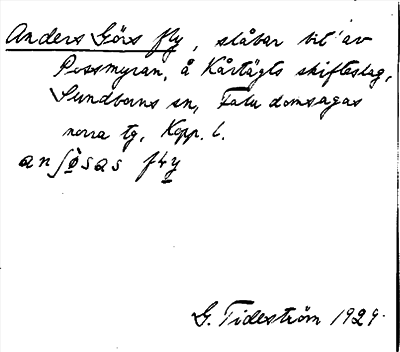 Anders Görs fly, slåbar bit av
Possmyran, å Kårtägts skifteslag,
Sundborns sn, Falu domsagas
norra tg, Kopp. l.
G. Tideström 1929.